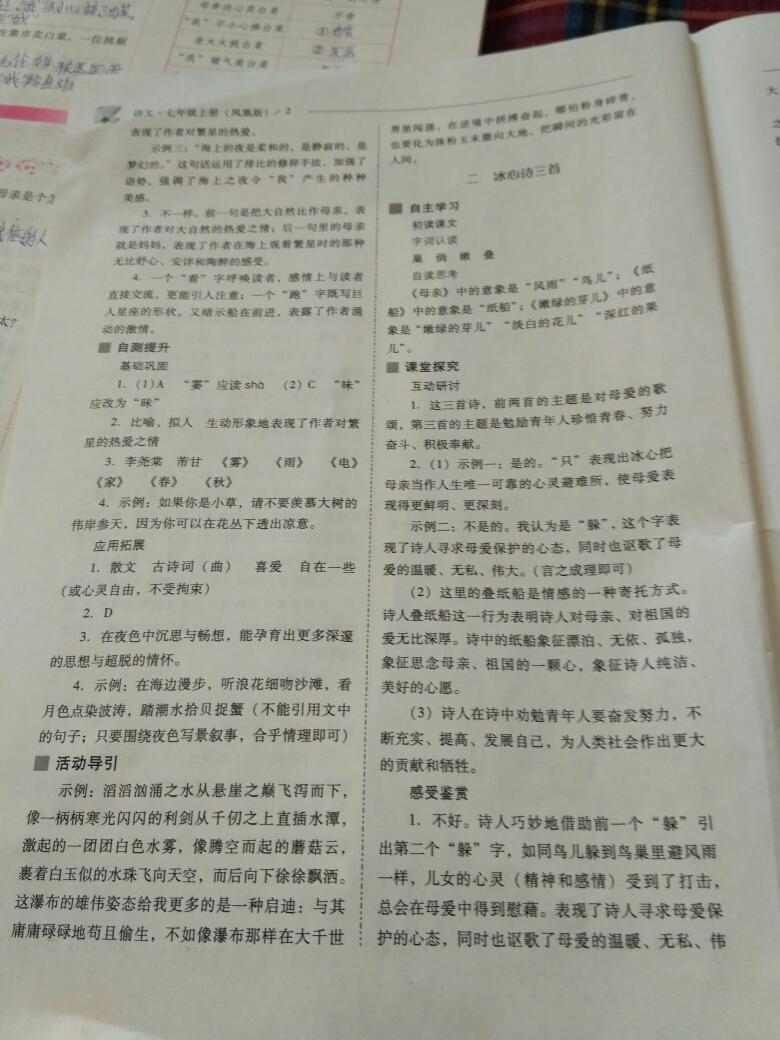 母亲决心卖白菜
不舍
在集市卖白菜，一位挑剔
“我”不小心摔白菜
①
老太太挑白菜
②
“我”赌气卖白菜
母亲是个怎
太？
语文·七年级上册（凤凰版）／2
表现了作者对繁星的热爱。
示例三：“海上的夜是柔和的，是静寂的，是
梦幻的。”这句话运用了排比的修辞手法，加强了
语势，强调了海上之夜令“我”产生的种种
美感。
3. 不一样。前一句是把大自然比作母亲，表
现了作者对大自然的热爱之情；后一句里的母亲
就是妈妈，表现了作者在海上观看繁星时的那种
无比舒心、安详和陶醉的感受。
4. 一个“看”字呼唤读者，感情上与读者
直接交流，更能引人注意；一个“跑”字既写巨
人星座的形状，又暗示船在前进，表露了作者涌
动的激情。
自测提升
基础巩固
1. (1)A “霎”应读shà (2)C “昧”
应改为“眛”
2. 比喻、拟人 生动形象地表现了作者对繁
星的热爱之情
3. 李尧棠 芾甘 《雾》 《雨》 《电》
《家》 《春》 《秋》
4. 示例：如果你是小草，请不要羡慕大树的
伟岸参天，因为你可以在花丛下透出凉意。
应用拓展
1. 散文 古诗词（曲） 喜爱 自在一些
（或心灵自由，不受拘束）
2. D
3. 在夜色中沉思与畅想，能孕育出更多深邃
的思想与超脱的情怀。
4. 示例：在海边漫步，听浪花细吻沙滩，看
月色点染波涛，踏潮水拾贝捉蟹（不能引用文中
的句子；只要围绕夜色写景叙事，合乎情理即可）
活动导引
示例：滔滔汹涌之水从悬崖之巅飞泻而下，
像一柄柄寒光闪闪的利剑从千仞之上直插水潭，
激起的一团团白色水雾，像腾空而起的蘑菇云，
裹着白玉似的水珠飞向天空，而后向下徐徐飘洒。
这瀑布的雄伟姿态给我更多的是一种启迪：与其
庸庸碌碌地苟且偷生，不如像瀑布那样在大千世
界里闯荡，在逆境中拼搏奋起，哪怕粉身碎骨，
也要化为珠粉玉末撒向大地，把瞬间的光彩留在
人间。
二 冰心诗三首
自主学习
初读课文
字词认读
巢 倘 嫩 叠
自读思考
《母亲》中的意象是“风雨”“鸟儿”；《纸
船》中的意象是“纸船”；《嫩绿的芽儿》中的意
象是“嫩绿的芽儿”“淡白的花儿”“深红的果
儿”。
课堂探究
互动研讨
1. 这三首诗，前两首的主题是对母爱的歌
颂，第三首的主题是勉励青年人珍惜青春、努力
奋斗、积极奉献。
2. (1) 示例一：是的。“只”表现出冰心把
母亲当作人生唯一可靠的心灵避难所，使母爱表
现得更鲜明、更深刻。
示例二：不是的。我认为是“躲”，这个字表
现了诗人寻求母爱保护的心态，同时也讴歌了母
爱的温暖、无私、伟大。（言之成理即可）
(2) 这里的叠纸船是情感的一种寄托方式。
诗人叠纸船这一行为表明诗人对母亲、对祖国的
爱无比深厚。诗中的纸船象征漂泊、无依、孤独，
象征思念母亲、祖国的一颗心，象征诗人纯洁、
美好的心愿。
(3) 诗人在诗中劝勉青年人要奋发努力，不
断充实、提高、发展自己，为人类社会作出更大
的贡献和牺牲。
感受鉴赏
1. 不好。诗人巧妙地借助前一个“躲”引
出第二个“躲”字，如同鸟儿躲到鸟巢里避风雨
一样，儿女的心灵（精神和感情）受到了打击，
总会在母爱中得到慰藉。表现了诗人寻求母爱保
护的心态，同时也讴歌了母爱的温暖、无私、伟
大